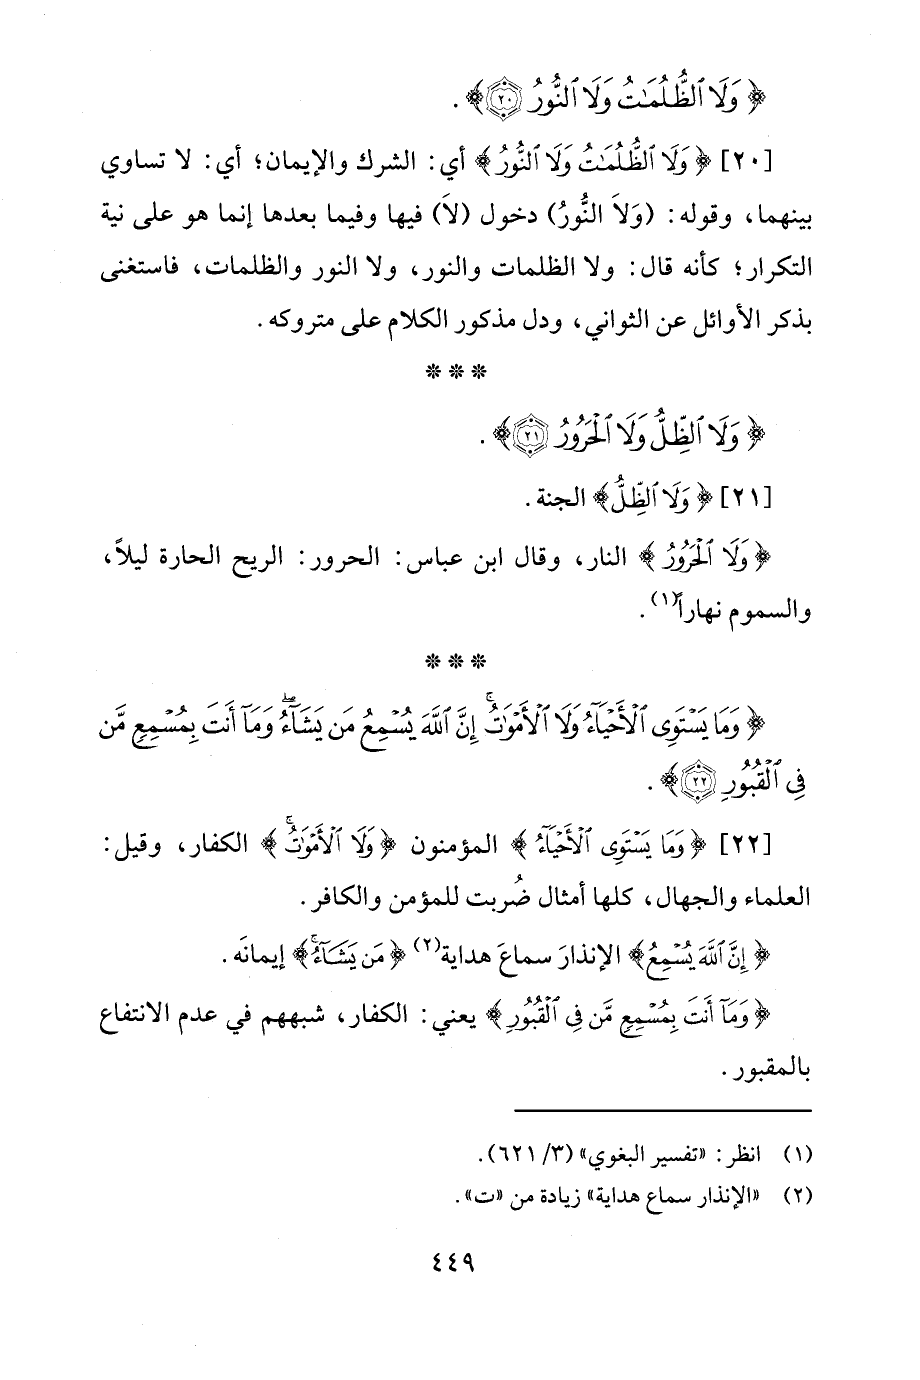 ﴿ وَلَا ٱلظُّلُمَـٰتُ وَلَا ٱلنُّورُ ۝٢٠ ﴾ .
[٢٠] ﴿ وَلَا ٱلظُّلُمَـٰتُ وَلَا ٱلنُّورُ ﴾ أي: الشرك والإيمان؛ أي: لا تساوي
بينهما، وقوله: (وَلاَ النُّورُ) دخول (لاَ) فيها وفيما بعدها إنما هو على نية
التكرار؛ كأنه قال: ولا الظلمات والنور، ولا النور والظلمات، فاستغنى
بذكر الأوائل عن الثواني، ودل مذكور الكلام على متروكه.
* * *
﴿ وَلَا ٱلظِّلُّ وَلَا ٱلْحَرُورُ ۝٢١ ﴾ .
[٢١] ﴿ وَلَا ٱلظِّلُّ ﴾ الجنة.
﴿ وَلَا ٱلْحَرُورُ ﴾ النار، وقال ابن عباس: الحرور: الريح الحارة ليلاً،
والسموم نهاراً(١).
* * *
﴿ وَمَا يَسْتَوِى ٱلْأَحْيَآءُ وَلَا ٱلْأَمْوَٰتُ ۚ إِنَّ ٱللَّهَ يُسْمِعُ مَن يَشَآءُ ۖ وَمَآ أَنتَ بِمُسْمِعٍ مَّن
فِى ٱلْقُبُورِ ۝٢٢ ﴾ .
[٢٢] ﴿ وَمَا يَسْتَوِى ٱلْأَحْيَآءُ ﴾ المؤمنون ﴿ وَلَا ٱلْأَمْوَٰتُ ۚ ﴾ الكفار، وقيل:
العلماء والجهال، كلها أمثال ضُربت للمؤمن والكافر.
﴿ إِنَّ ٱللَّهَ يُسْمِعُ ﴾ الإنذارَ سماعَ هداية(٢) ﴿ مَن يَشَآءُ ۚ ﴾ إيمانَه.
﴿ وَمَآ أَنتَ بِمُسْمِعٍ مَّن فِى ٱلْقُبُورِ ﴾ يعني: الكفار، شبههم في عدم الانتفاع
بالمقبور.
(١) انظر: «تفسير البغوي» (٣/ ٦٢١).
(٢) «الإنذار سماع هداية» زيادة من «ت».
٤٤٩